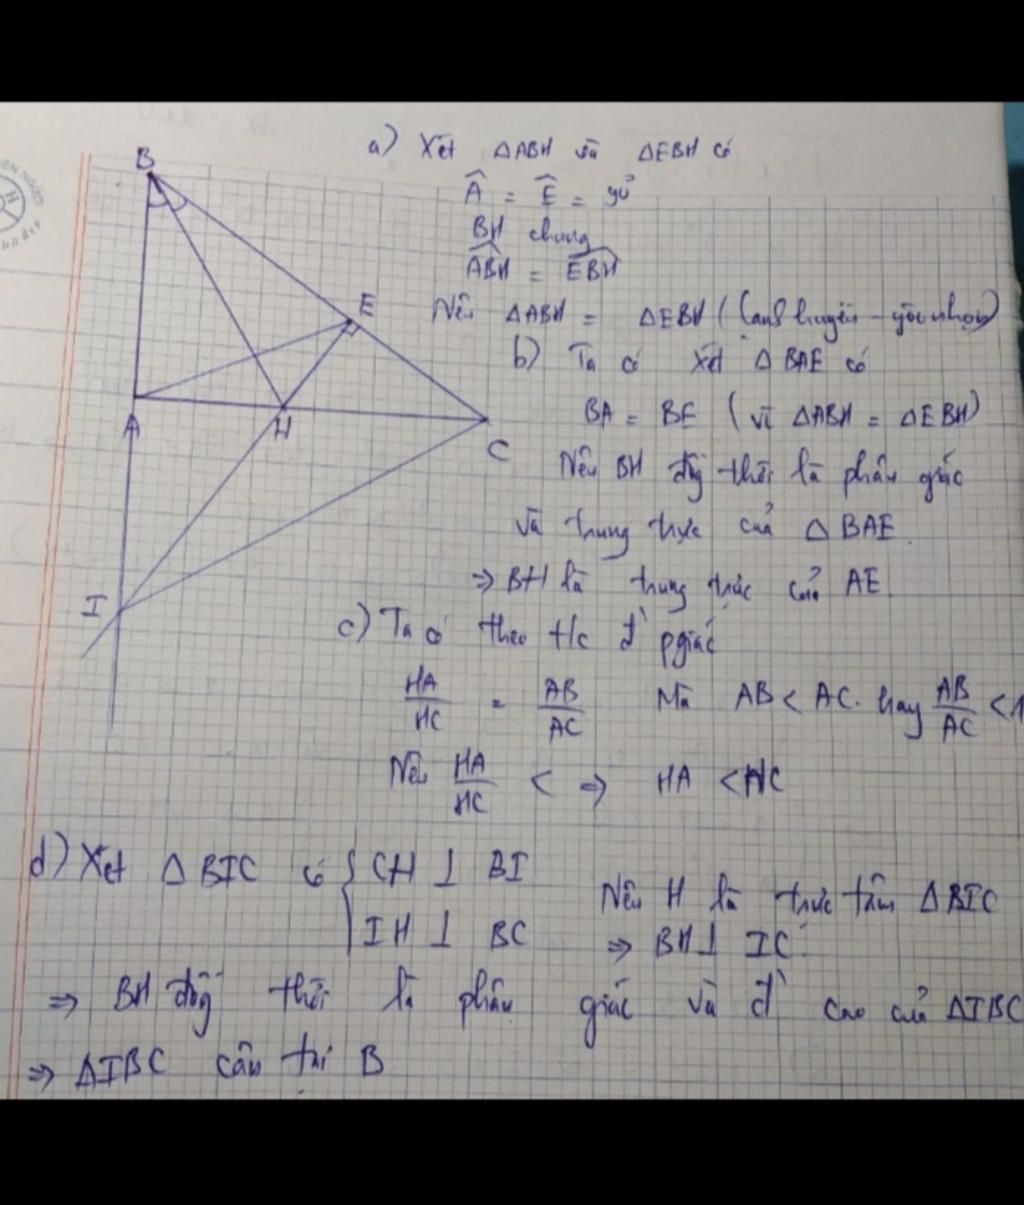 a) Xét ΔABH và ΔEBH có
Â = Ê = 90°
BH chung
ABH = EBH
Nên ΔABH = ΔEBH (cạnh huyền - góc nhọn)
b) Ta có Xét ΔBAE có
BA = BE (vì ΔABH = ΔEBH)
Nên BH đồng thời là phân giác
và trung trực của ΔBAE.
⇒ BH là trung trực của AE.
c) Ta có theo t/c đ` pgiác
HA/HC = AB/AC Mà AB < AC. hay AB/AC < 1
Nên HA/HC < ⇒ HA < HC
d) Xét ΔBIC có { CH ⊥ BI
IH ⊥ BC
Nên H là trực tâm ΔBIC
⇒ BH ⊥ IC
⇒ BH đồng thời là phân giác và đ` cao của ΔIBC
⇒ ΔIBC cân tại B
B
E
A
H
C
I